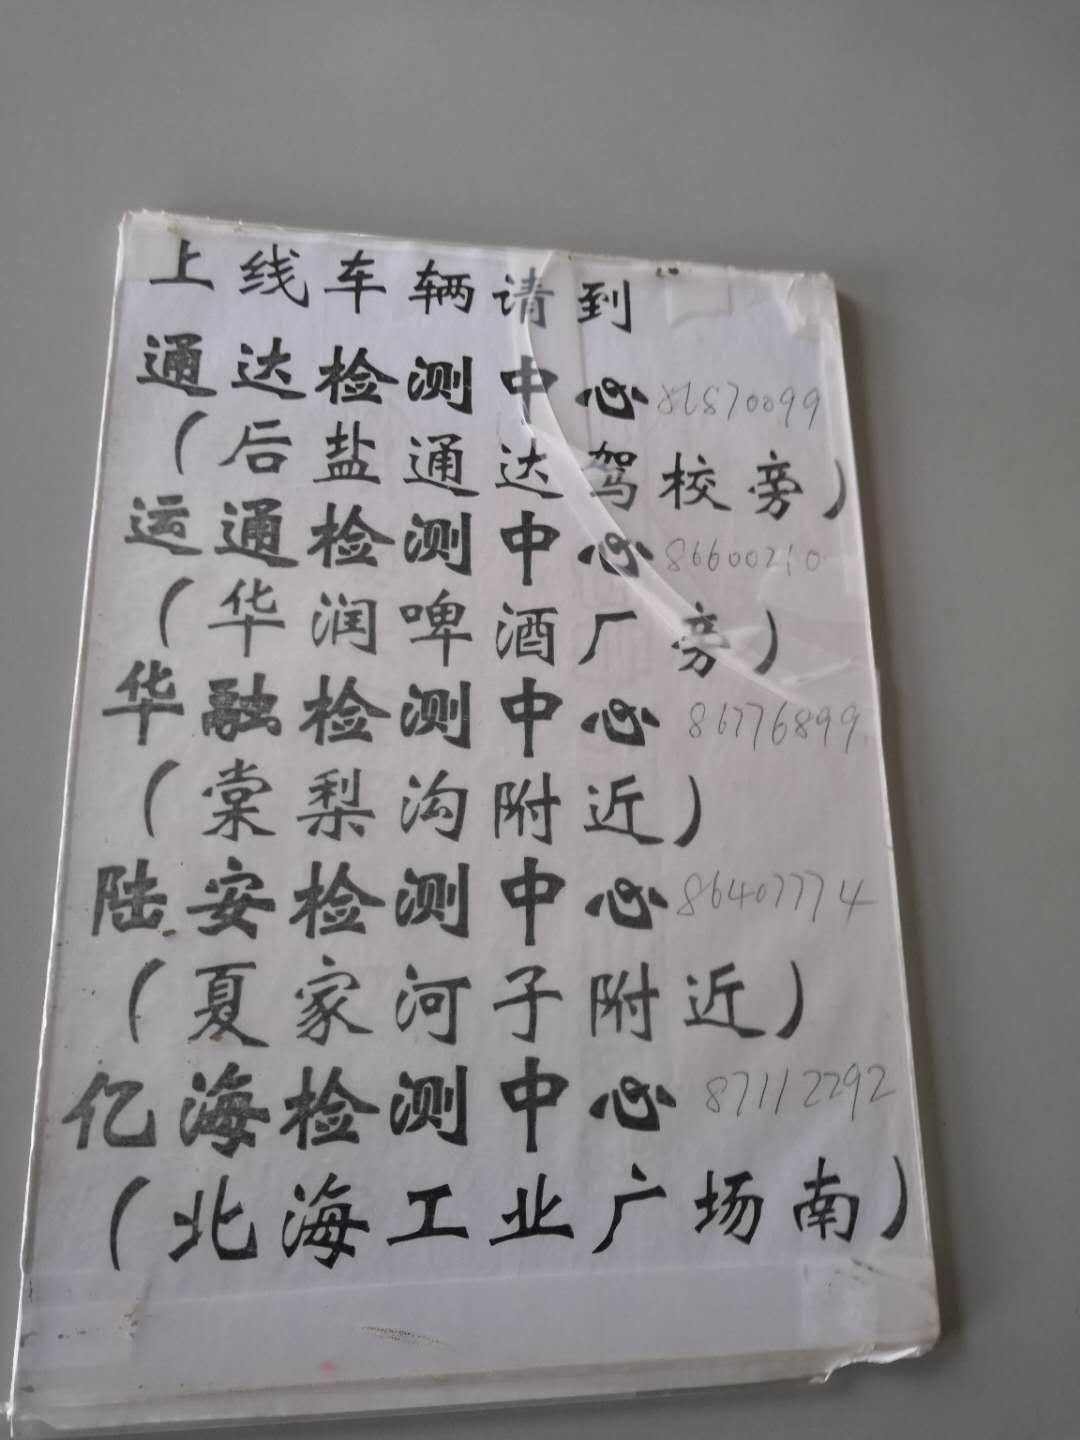 上线车辆请到
通达检测中心 86870099
（后盐通达驾校旁）
运通检测中心 86600210
（华润啤酒厂旁）
华融检测中心 86776899
（棠梨沟附近）
陆安检测中心 86407774
（夏家河子附近）
亿海检测中心 87112292
（北海工业广场南）